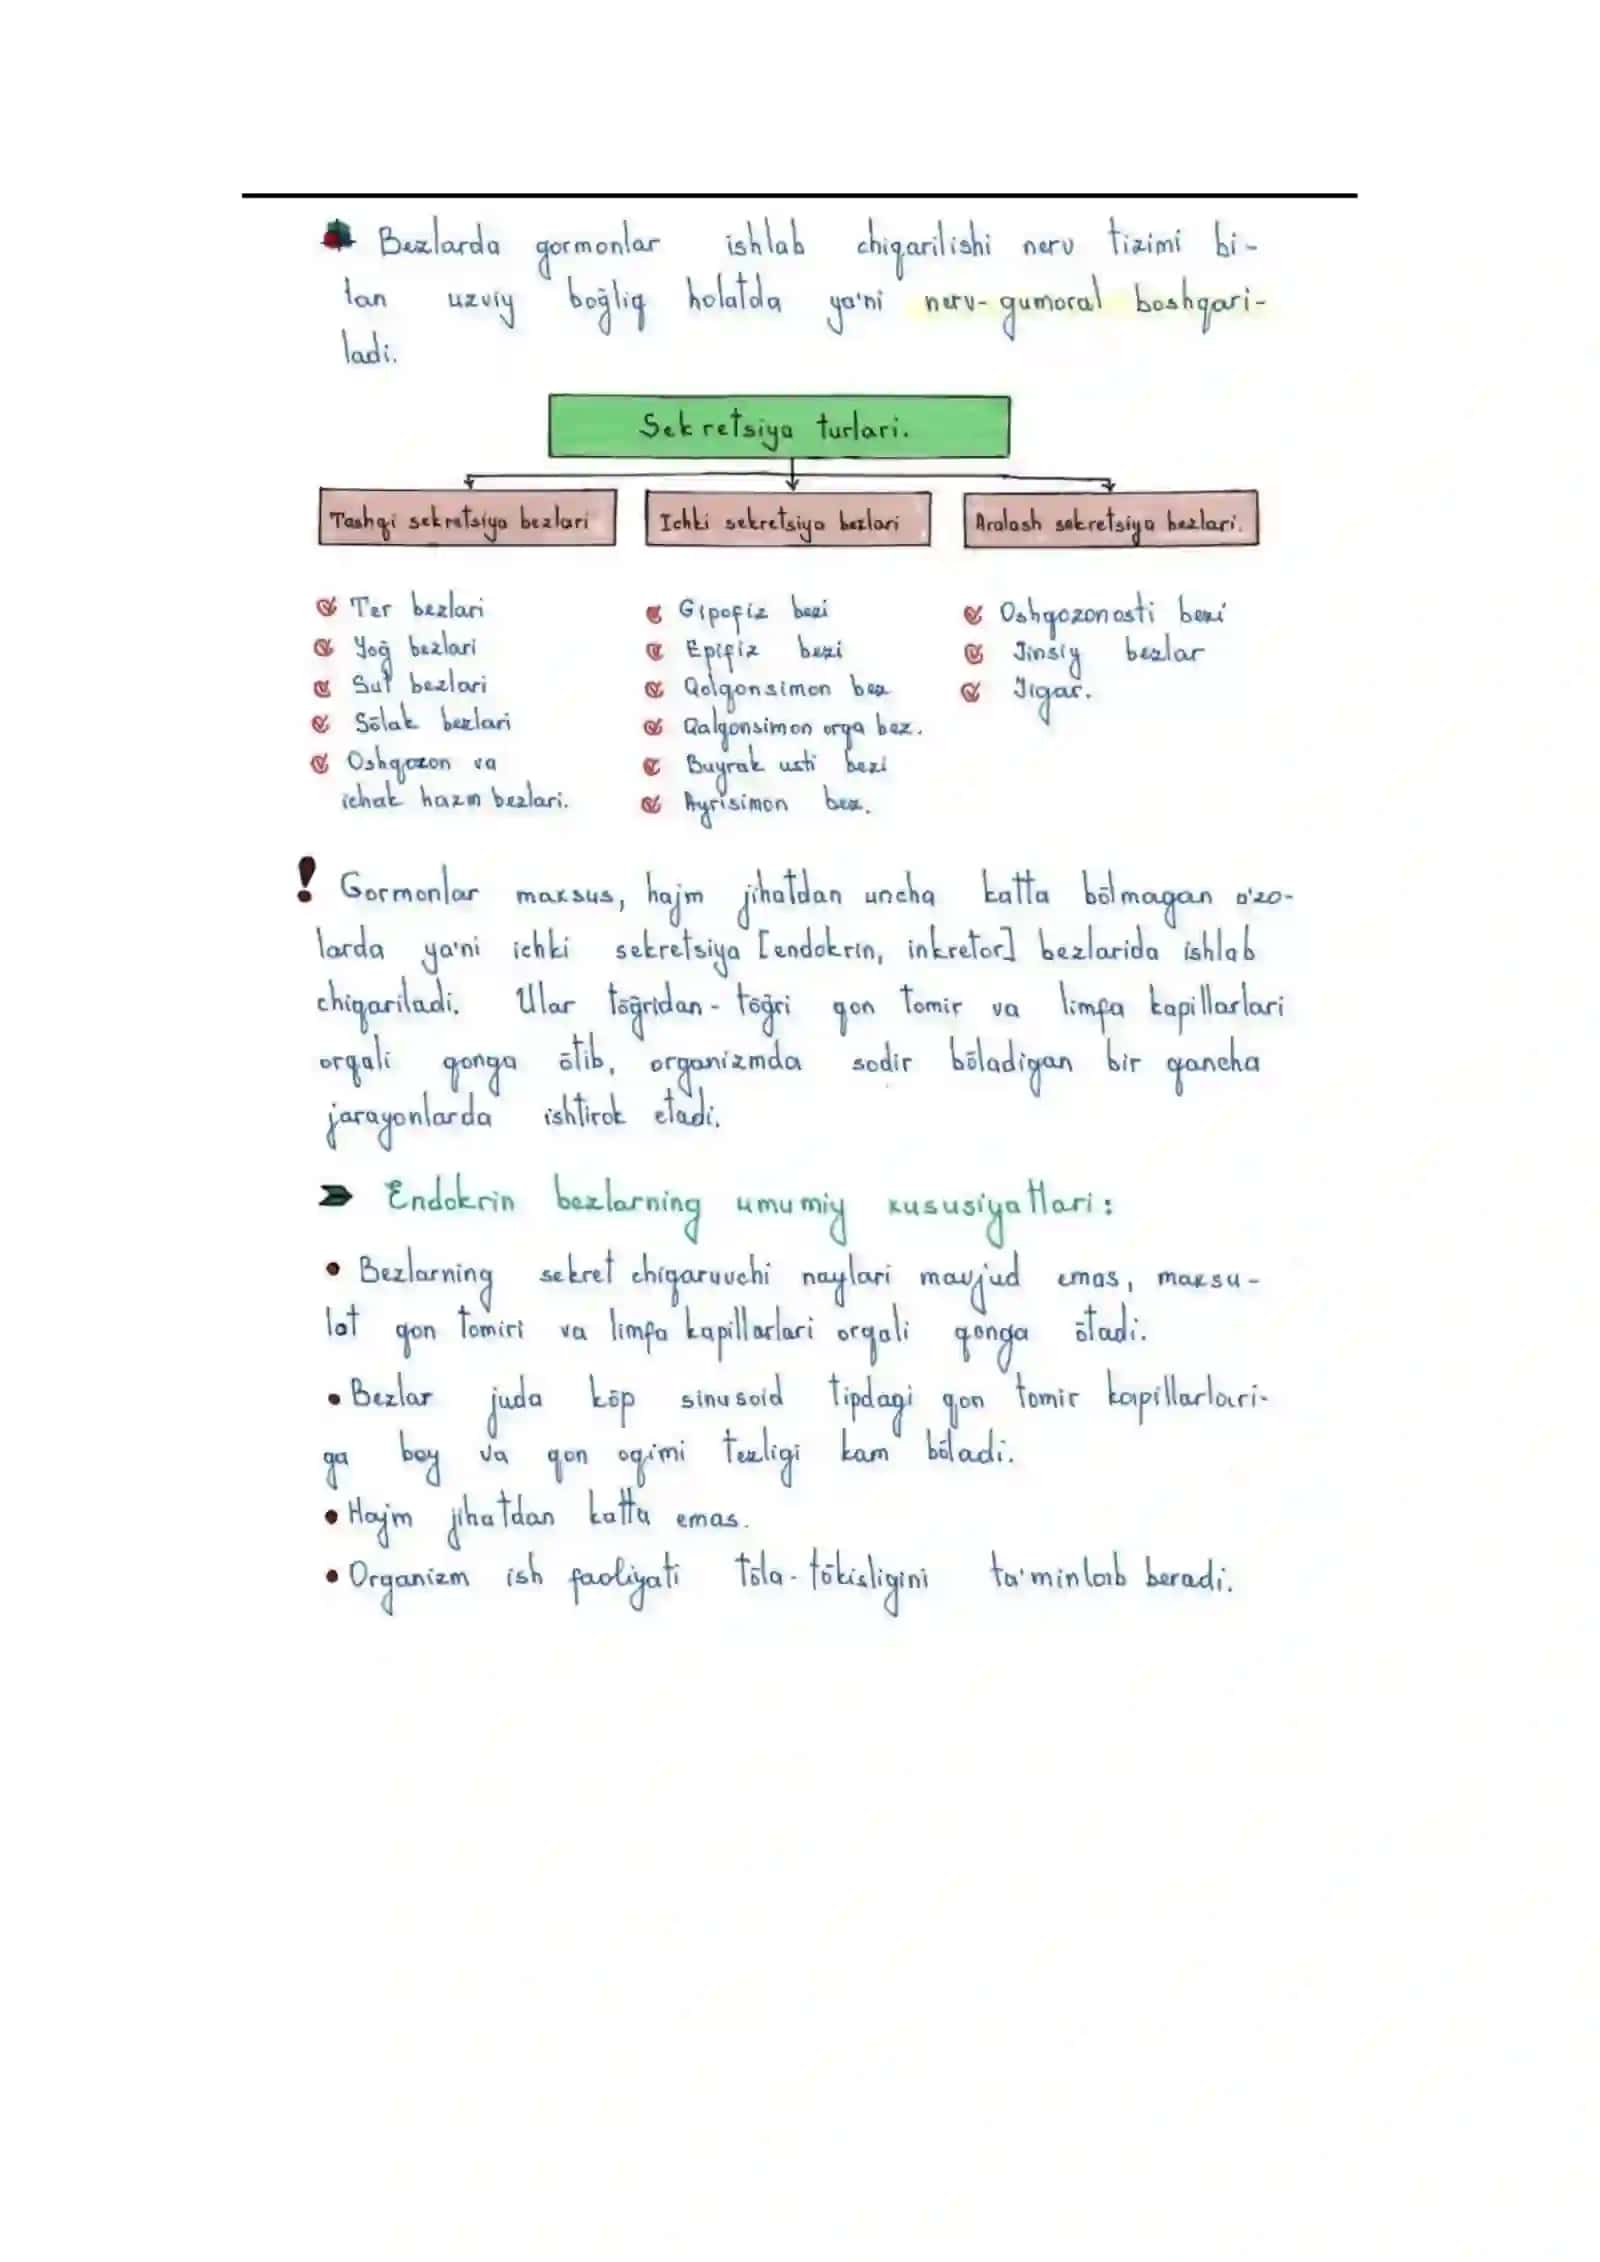 Bezlarda gormonlar ishlab chiqarilishi nerv tizimi bi-
lan uzviy boḡliq holatda ya'ni nerv-gumoral boshqari-
ladi.
Sekretsiya turlari.
Tashqi sekretsiya bezlari
Ichki sekretsiya bezlari
Aralash sekretsiya bezlari.
Ter bezlari
Yoḡ bezlari
Sut bezlari
Sōlak bezlari
Oshqozon va
ichak hazm bezlari.
Gipofiz bezi
Epifiz bezi
Qolqonsimon bez
Qalqonsimon orqa bez.
Buyrak usti bezi
Ayrisimon bez.
Oshqozonosti bezi
Jinsiy bezlar
Jigar.
! Gormonlar maxsus, hajm jihatdan uncha katta bōlmagan a'zo-
larda ya'ni ichki sekretsiya [endokrin, inkretor] bezlarida ishlab
chiqariladi. Ular tōḡridan-tōḡri qon tomir va limfa kapillarlari
orqali qonga ōtib, organizmda sodir bōladigan bir qancha
jarayonlarda ishtirok etadi.
Endokrin bezlarning umumiy xususiyatlari:
• Bezlarning sekret chiqaruvchi naylari mavjud emas, maxsu-
lot qon tomiri va limfa kapillarlari orqali qonga ōtadi.
• Bezlar juda kōp sinusoid tipdagi qon tomir kapillarlari-
ga boy va qon oqimi tezligi kam bōladi.
• Hajm jihatdan katta emas.
• Organizm ish faoliyati tōla-tōkisligini ta'minlab beradi.